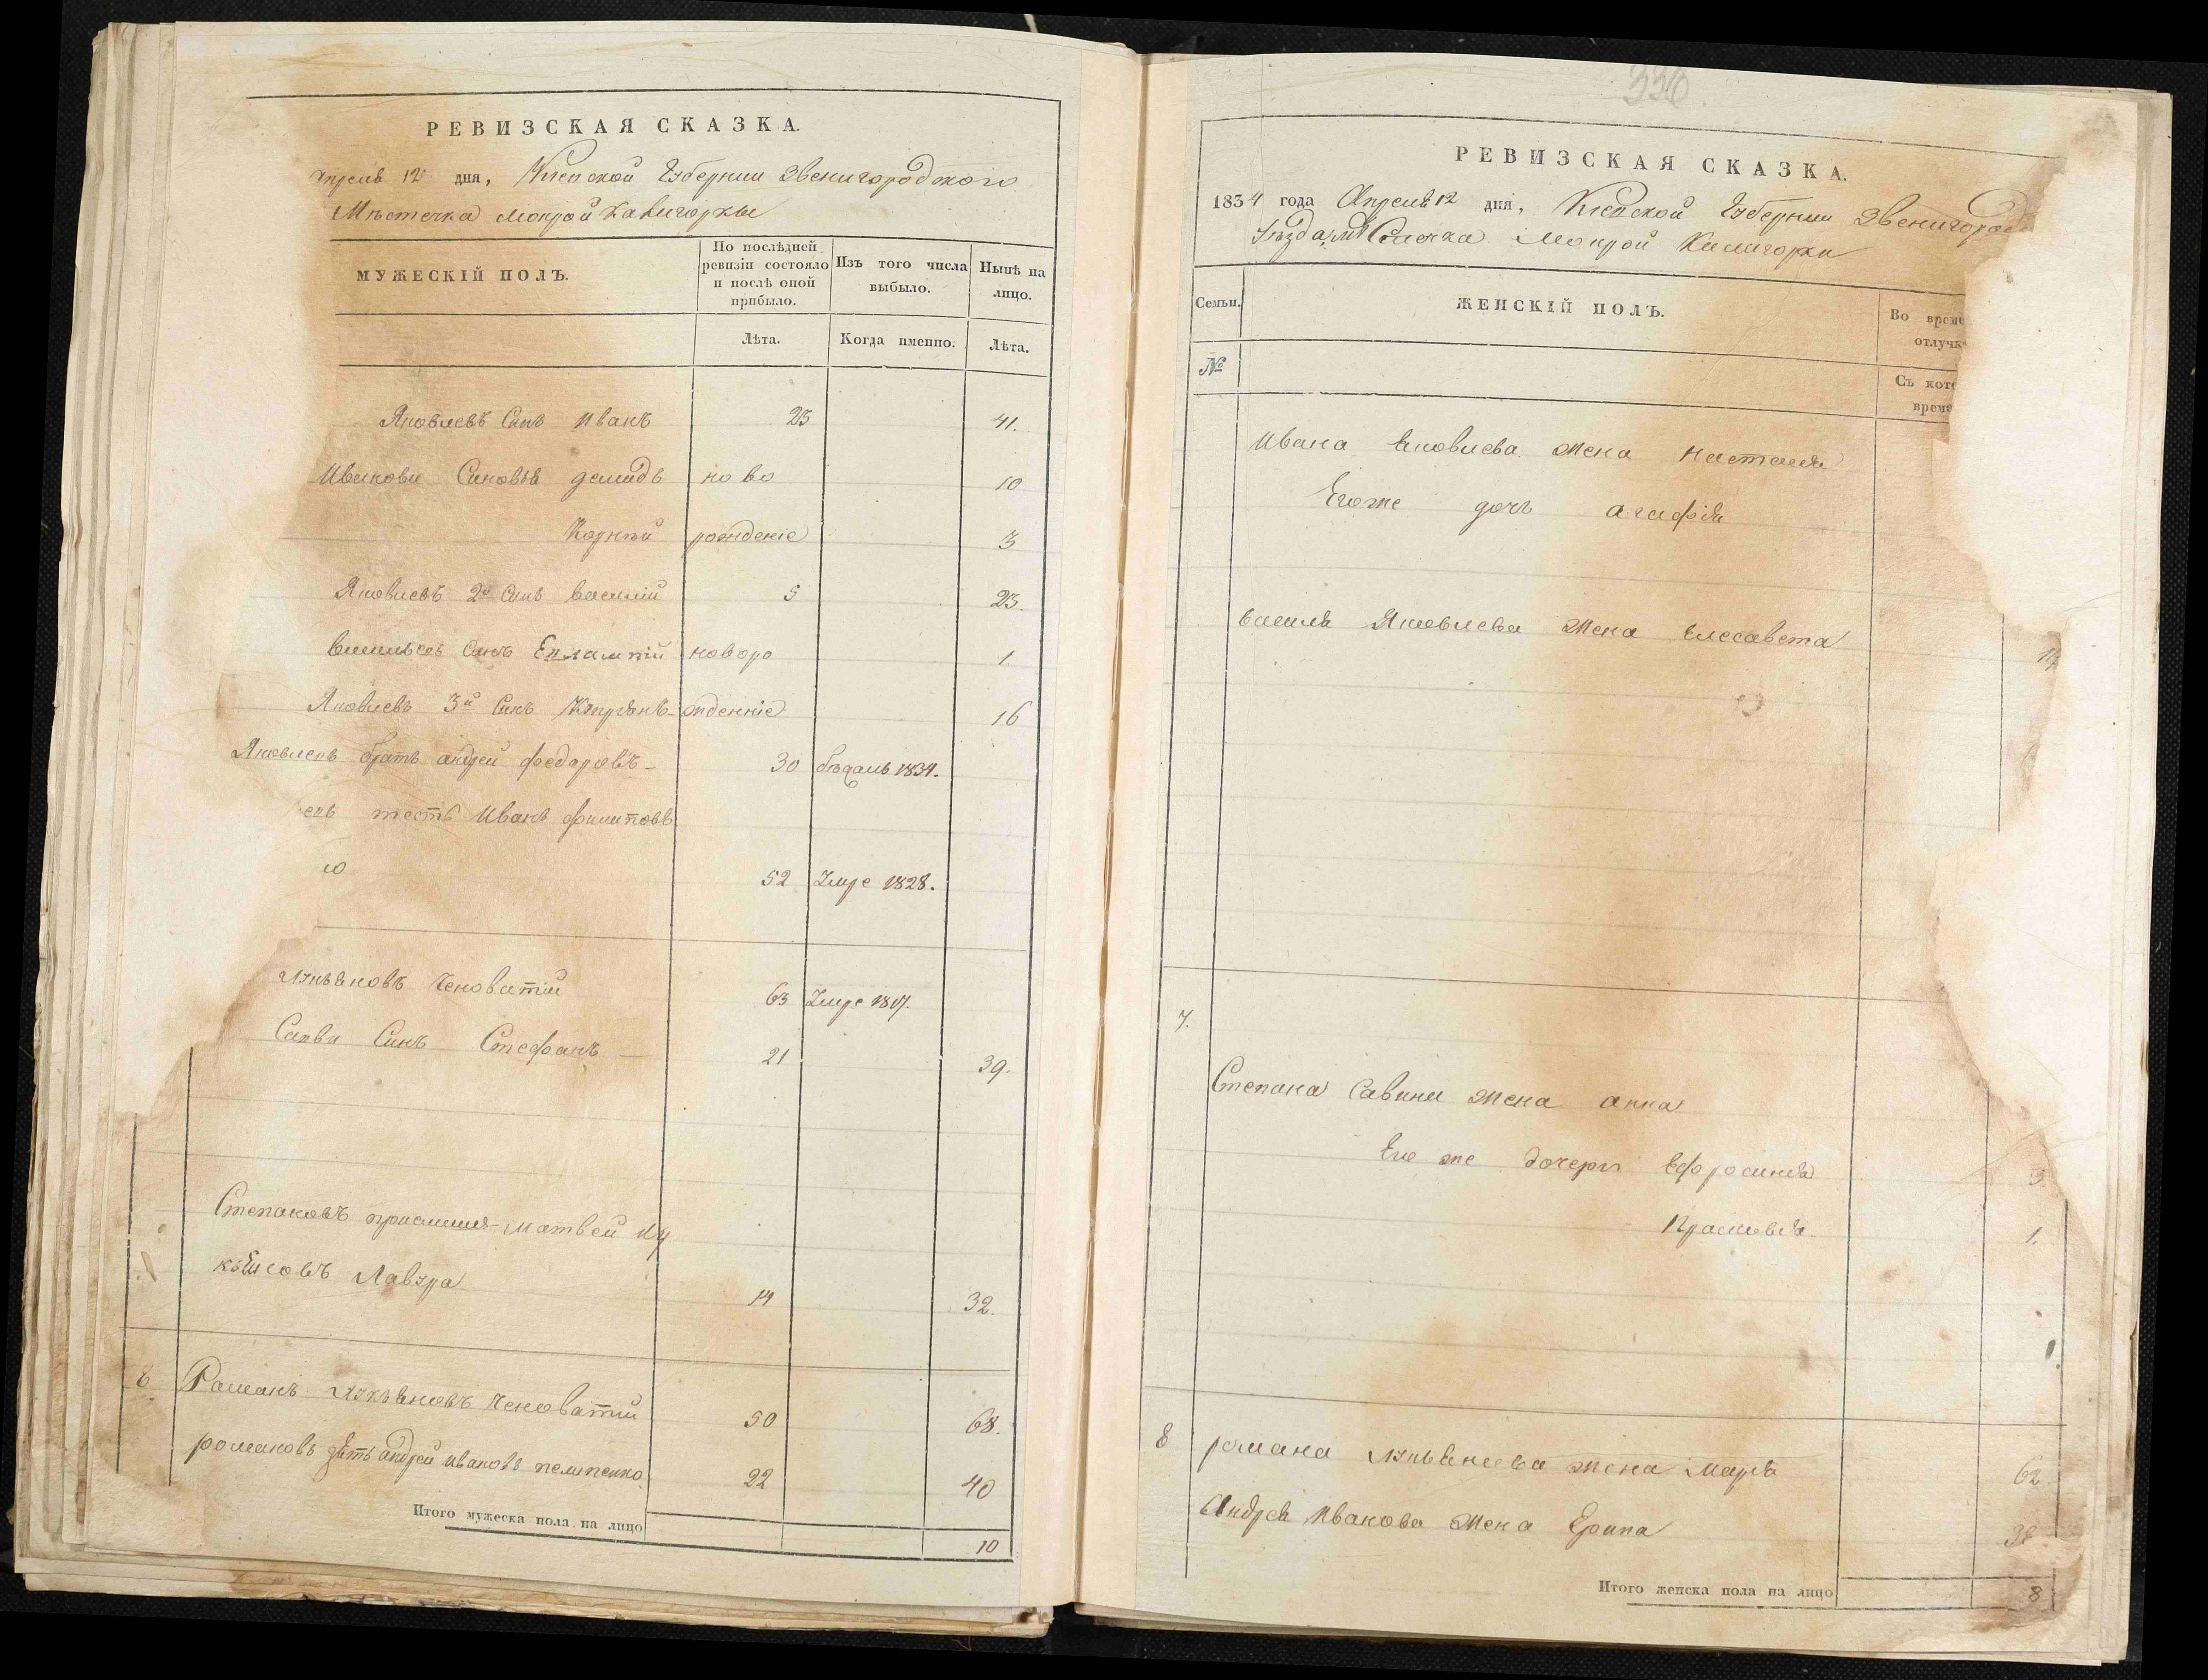 РЕВИЗСКАЯ СКАЗКА.
апреля 12 дня, Кіевской Губерніи Звенигородского
Мѣстечка Мокрой Калигорки
МУЖЕСКІЙ ПОЛЪ.
По послѣдней ревизіи состояло и послѣ оной прибыло.
Изъ того числа выбыло.
Нынѣ на лицо.
Лѣта.
Когда именно.
Лѣта.
Яковлевъ Синъ Иванъ 23 41.
Ивановы Синовья демидъ ново 10
Корнѣй рожденіе 3
Яковлевъ 2й Синъ василій 5 23.
васильевъ Синъ Евлампій новоро 1.
Яковлевъ 3й Синъ жденніе 16
Яковлевъ братъ андрей федоровъ 30 1834.
тесть Иванъ филиповъ
52 Умре 1828.
Лукьяновъ 63 Умре 1817.
Савви Синъ Стефанъ 21 39.
Степановъ матвей
14 32.
8 Романъ Лукьяновъ 50 68.
романовъ зять андрей ивановъ 22 40
Итого мужеска пола на лицо 10
336
РЕВИЗСКАЯ СКАЗКА.
1834 года Апреля 12 дня, Кіевской Губерніи Звенигород
Уѣзда, Мокрой Калигорки
Семьи.
ЖЕНСКІЙ ПОЛЪ.
Во време
отлучк
№
Съ кото
време
Ивана Яковлева Жена настасія
Егоже дочъ агафія
василя Яковлева Жена Елесавета
7.
Степана Савина Жена анна
Его же дочери Ефросинія 3
Прасковія 1.
8 романа Лукьянова жена Марія 62
Андрея Иванова Жена 38
Итого женска пола на лицо 8